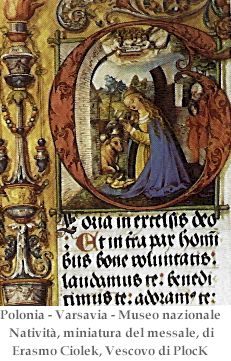 Gloria in excelsis deo
Et in tra pax homi
bus bone voluntatis
laudamus te: benedi
cimus te: adoram⁹ te:
Polonia - Varsavia - Museo nazionale
Natività, miniatura del messale, di
Erasmo Ciolek, Vescovo di PlocK